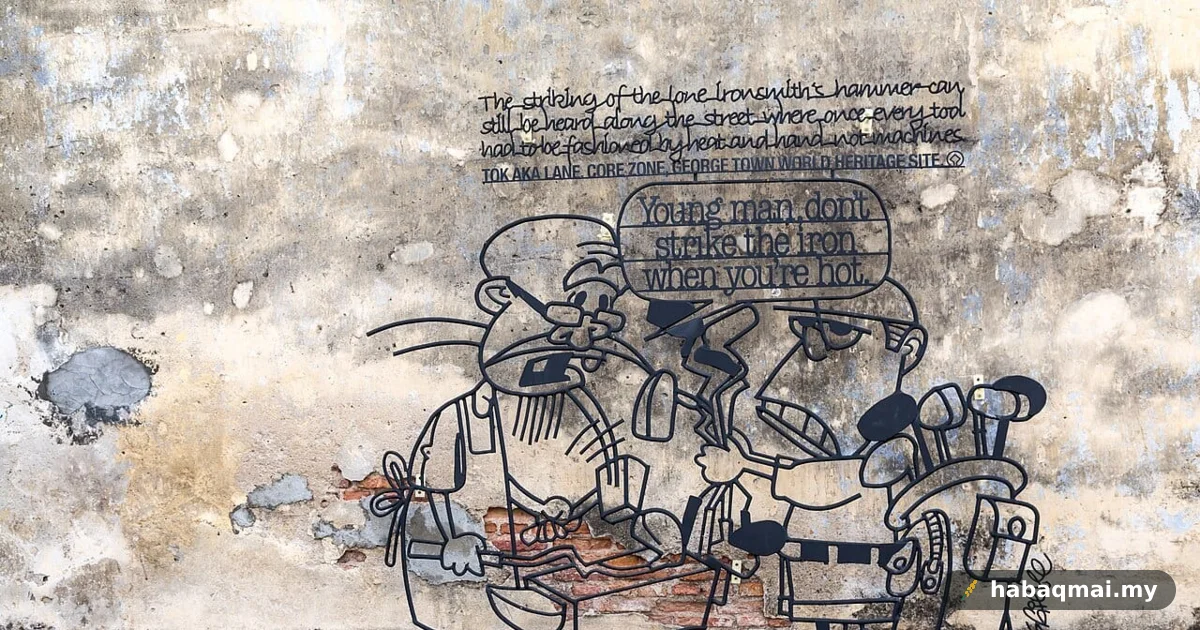 The striking of the lone ironsmith's hammer can
still be heard along the street where once every tool
had to be fashioned by heat and hand not machines.
TOK AKA LANE, CORE ZONE, GEORGE TOWN WORLD HERITAGE SITE.
Young man, don't
strike the iron
when you're hot.
habaqmai.my